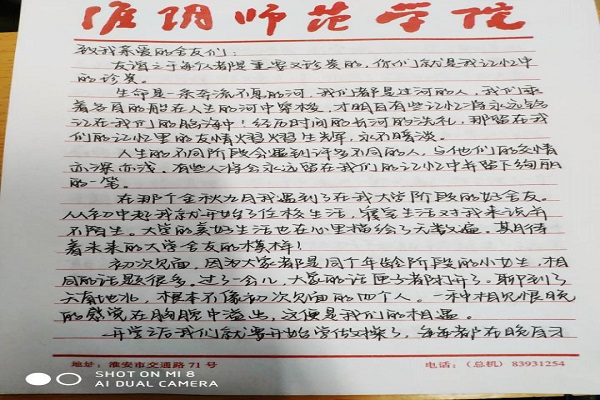 淮阴师范学院
致我亲爱的舍友们:
友谊之于每个人都是重要又珍贵的,你们就是我记忆中
的珍贵。
生命是一条奔流不息的河,我们都是过河的人,我们乘
着各自的船在人生的河中穿梭,才明白有些记忆将永远铭
记在我们的脑海中!经历时间的长河的洗礼,那留在我
们的记忆里的友情熠熠生辉,永不暗淡。
人生的不同阶段会遇到许多不同的人,与他们的交情
亦深亦浅。有些人将会永远留在我们的记忆中并留下绚丽
的一笔。
在那个金秋九月我遇到了在我大学阶段的好舍友。
从初中起我就开始了住校生活,寝室生活对我来说并
不陌生。大学的美好生活也在心里描绘了无数遍。期待
着未来的大学舍友的模样!
初次见面,因为大家都是同个年龄阶段的小女生,相
同的话题很多。过了一会儿,大家的话匣子都打开了。聊到了
天南地北,根本不像初次见面的四个人。一种相见恨晚
的感觉在胸腔中溢出,这便是我们的相遇。
开学之后我们就要开始学做操了,每每都在晚自习
地址:淮安市交通路71号 电话:(总机)83931254
SHOT ON MI 8
AI DUAL CAMERA